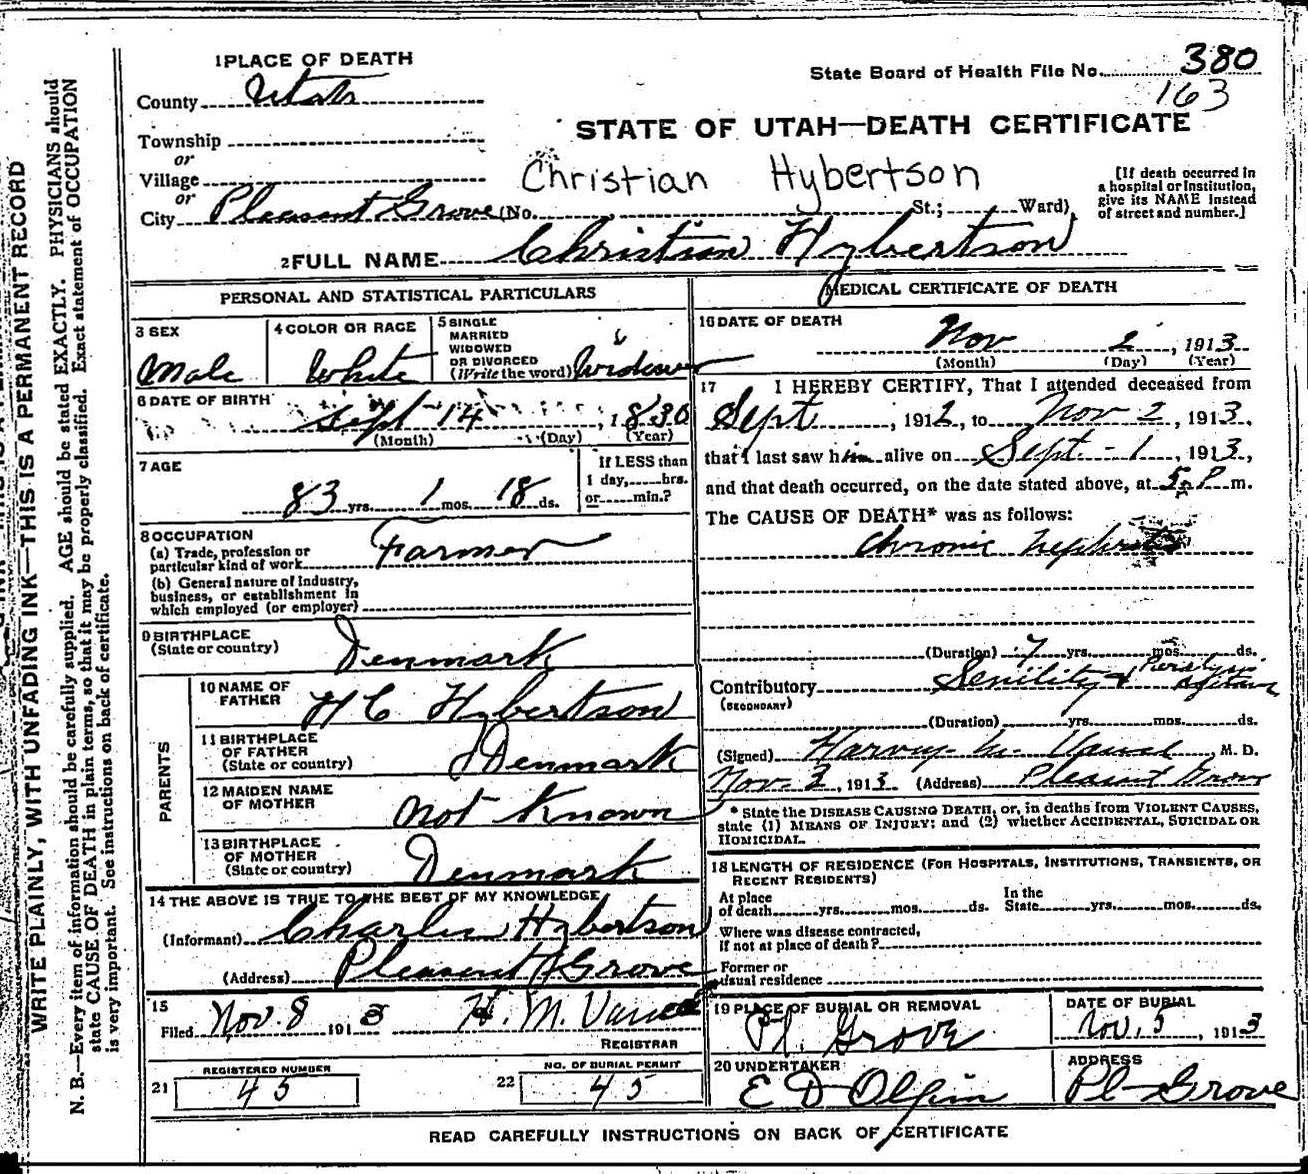 WRITE PLAINLY, WITH UNFADING INK—THIS IS A PERMANENT RECORD
N. B.—Every item of information should be carefully supplied. AGE should be stated EXACTLY. PHYSICIANS should
state CAUSE OF DEATH in plain terms, so that it may be properly classified. Exact statement of OCCUPATION
is very important. See instructions on back of certificate.
1 PLACE OF DEATH
County Utah
Township
or
Village
or
City Pleasant Grove (No. St.; Ward)
State Board of Health File No. 380
163
STATE OF UTAH—DEATH CERTIFICATE
Christian Hybertson
[If death occurred in
a hospital or institution,
give its NAME instead
of street and number.]
2 FULL NAME Christian Hybertson
PERSONAL AND STATISTICAL PARTICULARS
3 SEX
Male
4 COLOR OR RACE
White
5 SINGLE
MARRIED
WIDOWED
OR DIVORCED
(Write the word) Widower
6 DATE OF BIRTH
Sept 14, 1830
(Month) (Day) (Year)
7 AGE
83 yrs. 1 mos. 18 ds.
If LESS than
1 day, hrs.
or min.?
8 OCCUPATION
(a) Trade, profession or
particular kind of work Farmer
(b) General nature of Industry,
business, or establishment in
which employed (or employer)
9 BIRTHPLACE
(State or country) Denmark
PARENTS
10 NAME OF
FATHER H C Hybertson
11 BIRTHPLACE
OF FATHER
(State or country) Denmark
12 MAIDEN NAME
OF MOTHER not Known
13 BIRTHPLACE
OF MOTHER
(State or country) Denmark
14 THE ABOVE IS TRUE TO THE BEST OF MY KNOWLEDGE
(Informant) Charles Hybertson
(Address) Pleasant Grove
15
Filed Nov. 8 1913 H. M. Vance
REGISTRAR
REGISTERED NUMBER
21 45
NO. OF BURIAL PERMIT
22 45
MEDICAL CERTIFICATE OF DEATH
16 DATE OF DEATH
Nov 2, 1913
(Month) (Day) (Year)
17 I HEREBY CERTIFY, That I attended deceased from
Sept, 1912, to Nov 2, 1913,
that I last saw him alive on Sept. - 1, 1913,
and that death occurred, on the date stated above, at 5 P m.
The CAUSE OF DEATH* was as follows:
Chronic Nephritis
(Duration) 7 yrs. mos. ds.
Contributory Senility & Paralysis agitans
(SECONDARY)
(Duration) yrs. mos. ds.
(Signed) Harvey M. Vance, M. D.
Nov. 3, 1913 (Address) Pleasant Grove
* State the DISEASE CAUSING DEATH, or, in deaths from VIOLENT CAUSES,
state (1) MEANS OF INJURY; and (2) whether ACCIDENTAL, SUICIDAL OR
HOMICIDAL.
18 LENGTH OF RESIDENCE (FOR HOSPITALS, INSTITUTIONS, TRANSIENTS, OR
RECENT RESIDENTS)
At place
of death yrs. mos. ds.
In the
State yrs. mos. ds.
Where was disease contracted,
if not at place of death?
Former or
usual residence
19 PLACE OF BURIAL OR REMOVAL
Pl. Grove
DATE OF BURIAL
Nov. 5, 1913
20 UNDERTAKER
E D Olpin
ADDRESS
Pl Grove
READ CAREFULLY INSTRUCTIONS ON BACK OF CERTIFICATE